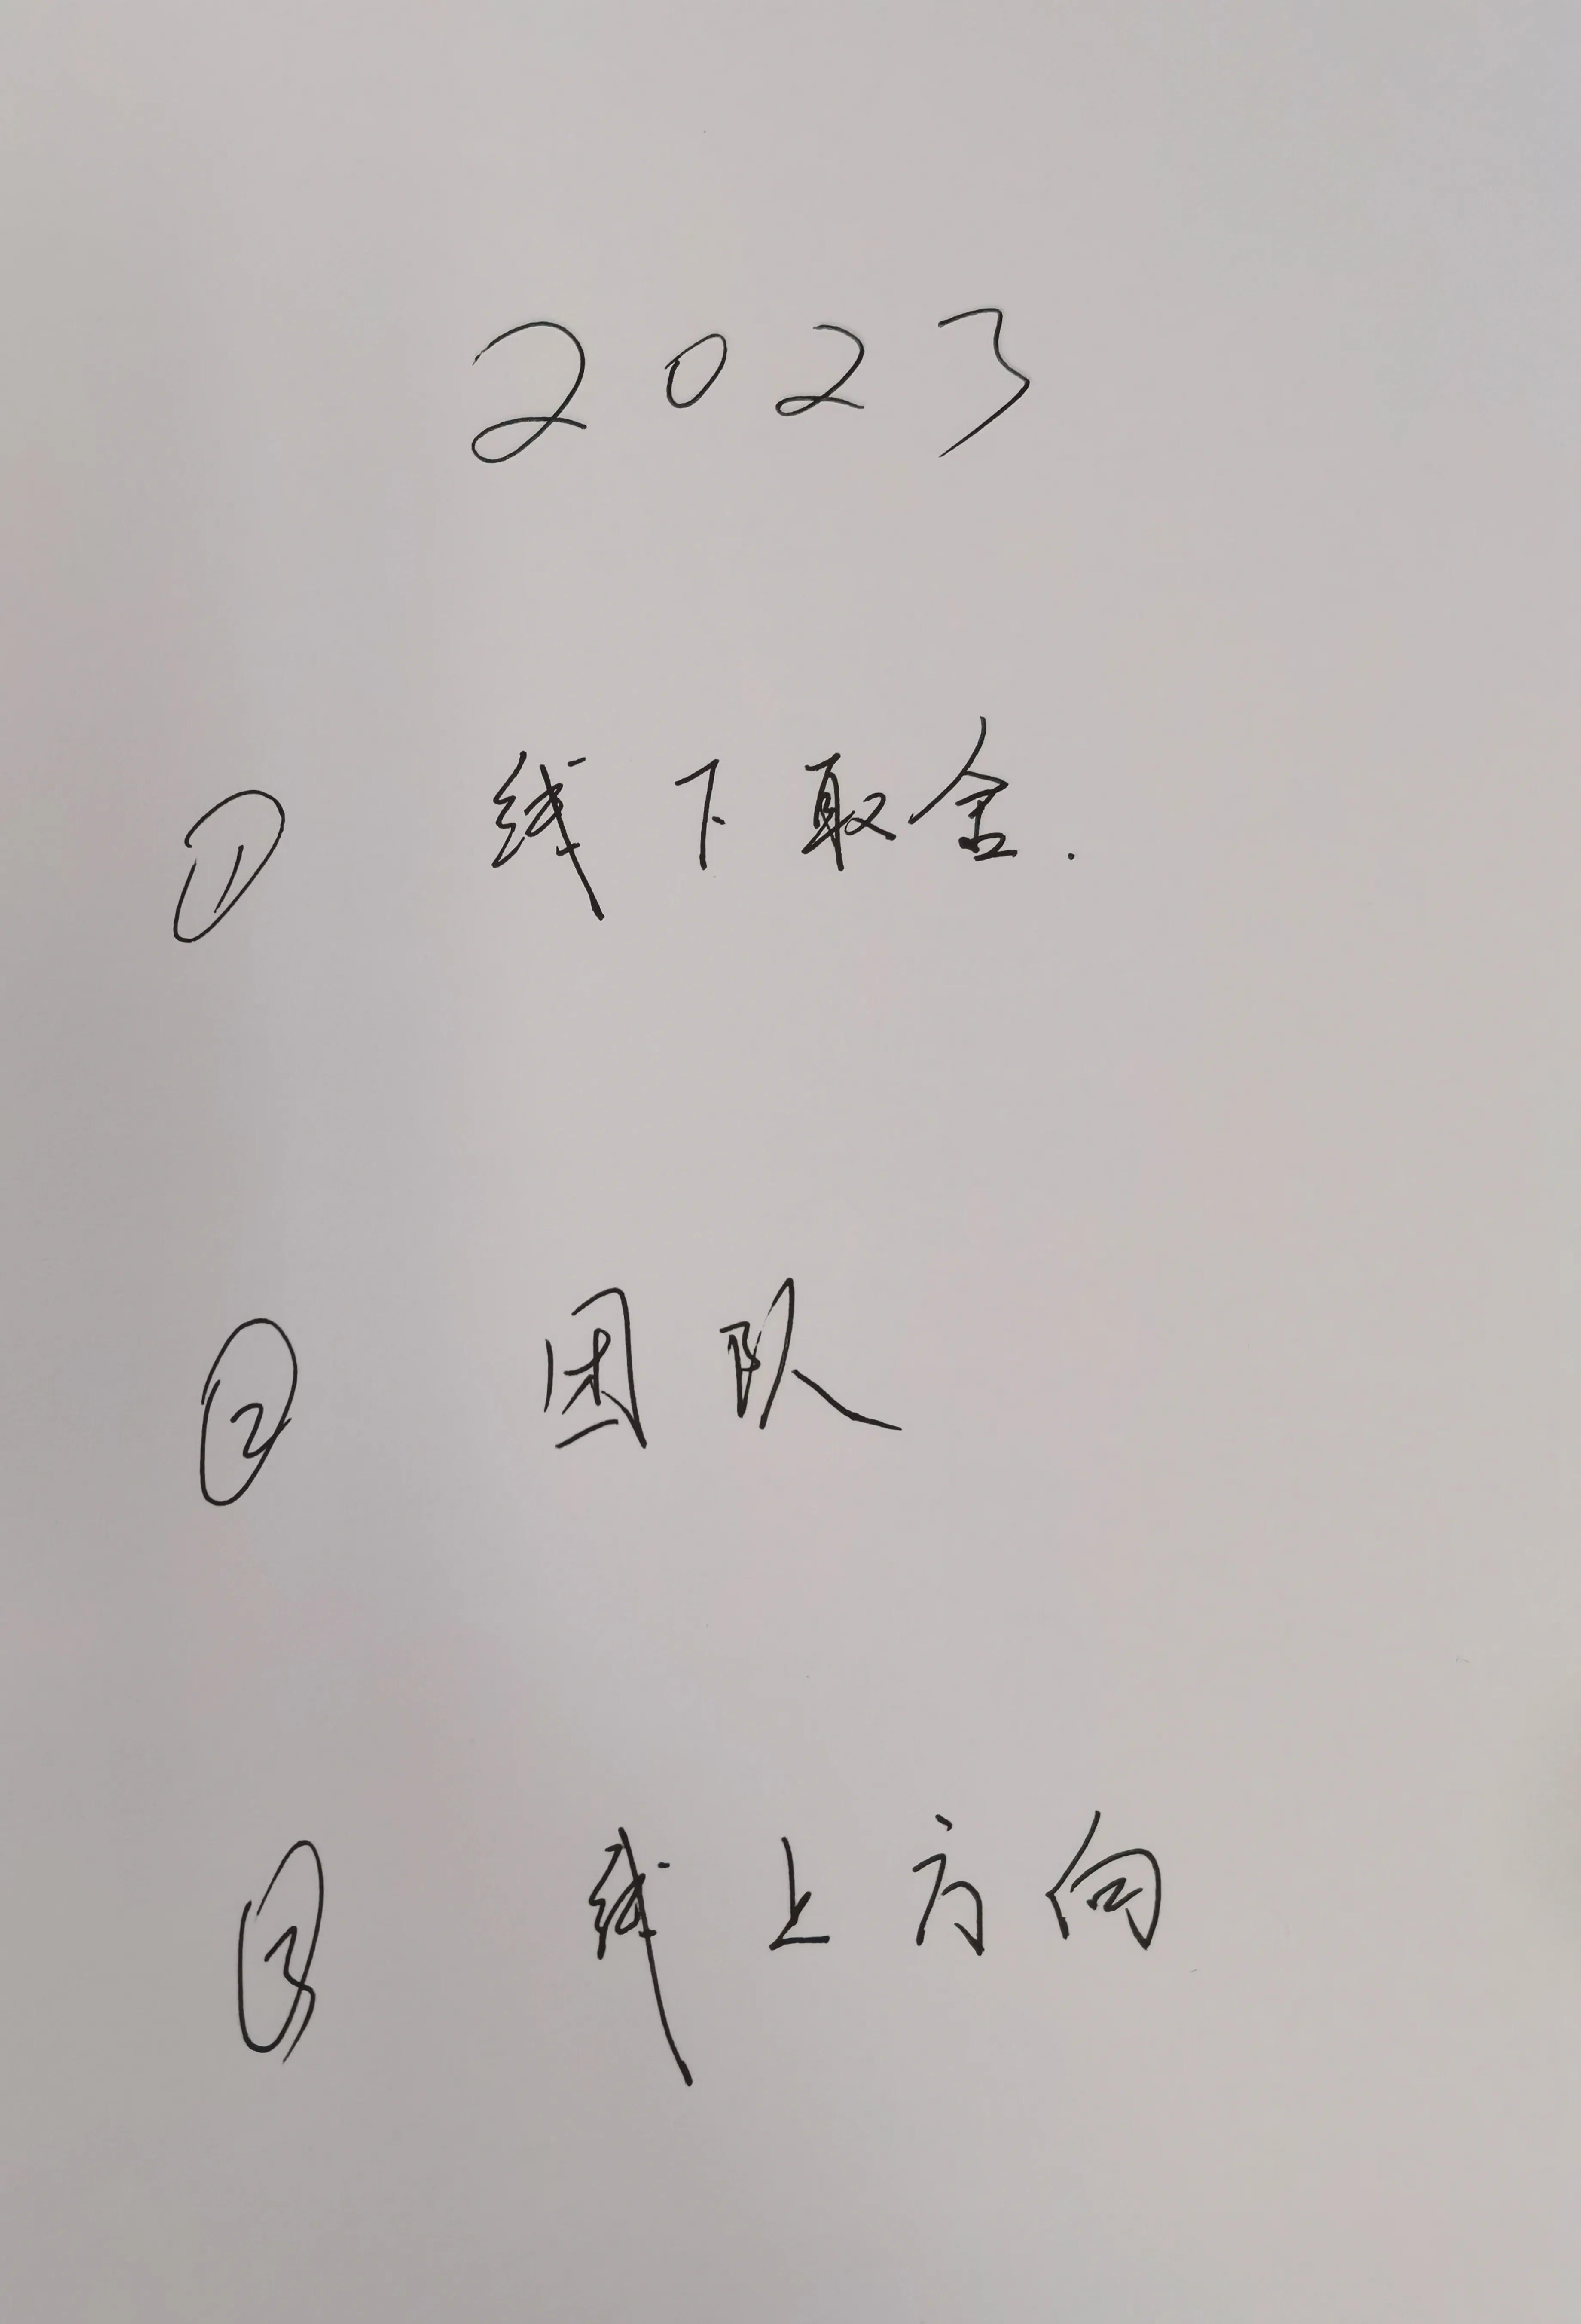 2023
① 线下取舍.
② 团队
③ 线上方向